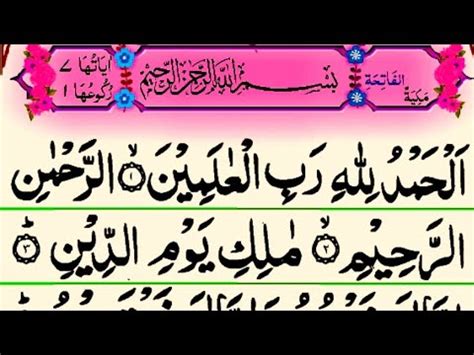 مَكِّيَّةٌ
الفَاتِحَة
بِسْمِ اللهِ الرَّحْمٰنِ الرَّحِيْمِ
اٰيَاتُهَا ٧
رُكُوْعُهَا ١
اَلْحَمْدُ لِلّٰهِ رَبِّ الْعٰلَمِيْنَ ۙ﴿١﴾ الرَّحْمٰنِ
الرَّحِيْمِ ۙ﴿٢﴾ مٰلِكِ يَوْمِ الدِّيْنِ ؕ﴿٣﴾